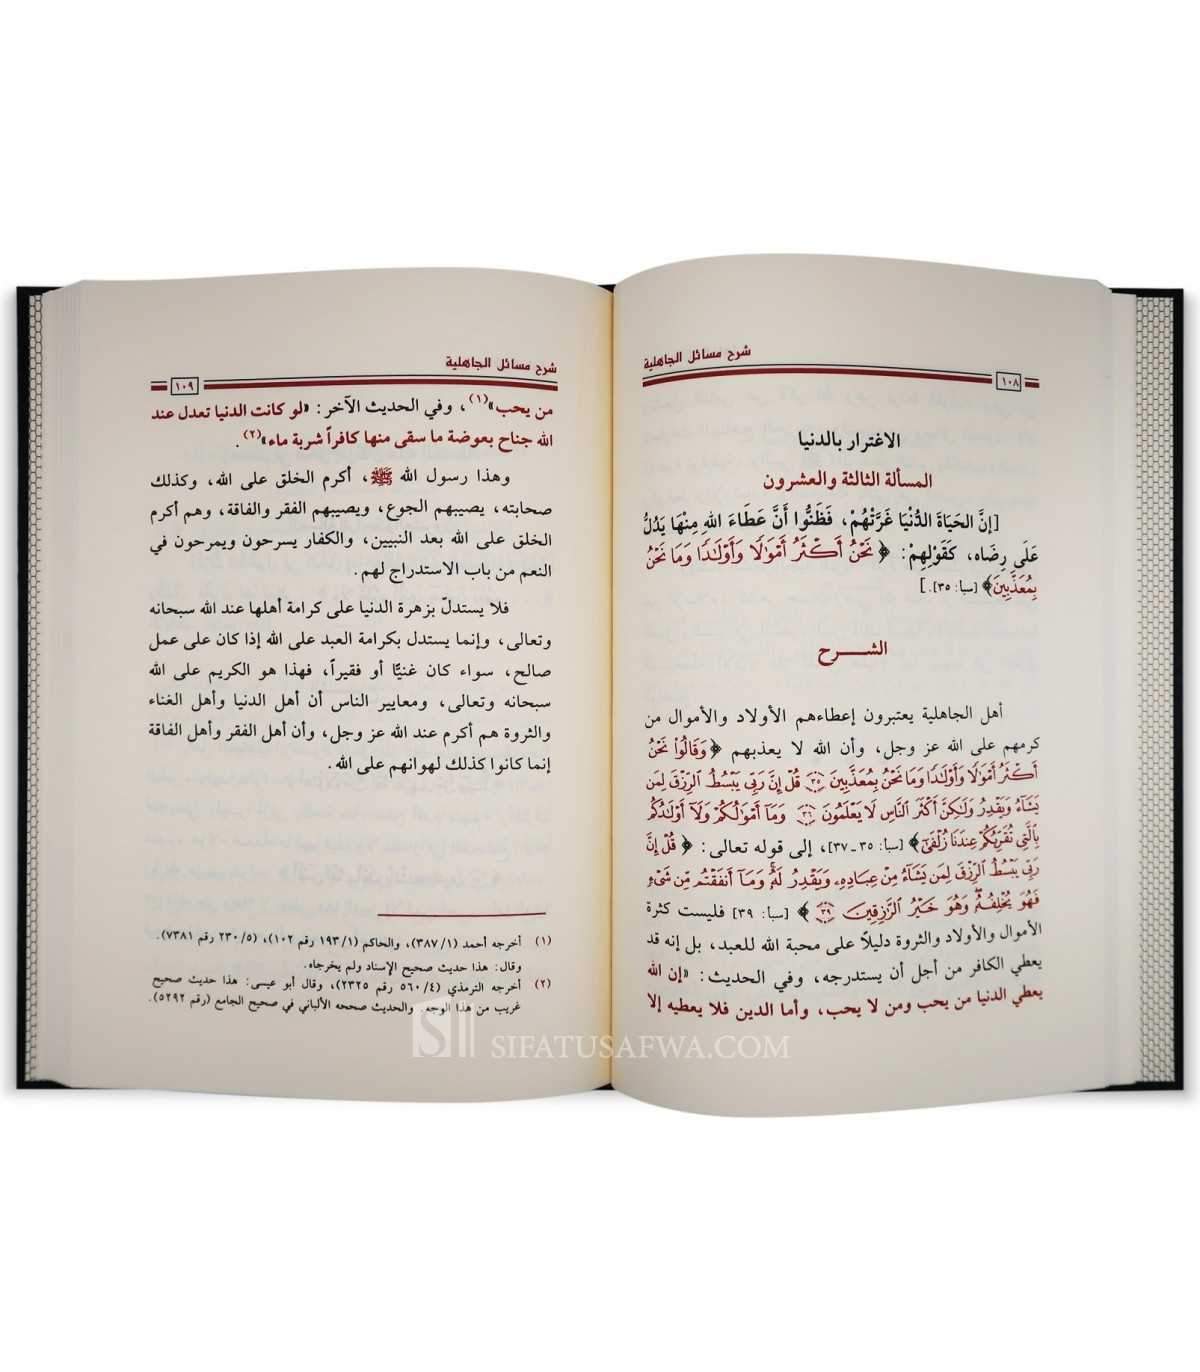 شرح مسائل الجاهلية
١٠٨
الاغترار بالدنيا
المسألة الثالثة والعشرون
[إنَّ الحَيَاةَ الدُّنْيَا غَرَّتْهُمْ، فَظَنُّوا أَنَّ عَطَاءَ اللهِ مِنْهَا يَدُلُّ
عَلَى رِضَاه، كَقَوْلِهِمْ: ﴿نَحْنُ أَكْثَرُ أَمْوَٰلًا وَأَوْلَٰدًا وَمَا نَحْنُ
بِمُعَذَّبِينَ﴾ [سبأ: ٣٥].]
الشـــرح
أهل الجاهلية يعتبرون إعطاءهم الأولاد والأموال من
كرمهم على الله عز وجل، وأن الله لا يعذبهم ﴿وَقَالُوا۟ نَحْنُ
أَكْثَرُ أَمْوَٰلًا وَأَوْلَٰدًا وَمَا نَحْنُ بِمُعَذَّبِينَ ٣٥ قُلْ إِنَّ رَبِّى يَبْسُطُ ٱلرِّزْقَ لِمَن
يَشَآءُ وَيَقْدِرُ وَلَٰكِنَّ أَكْثَرَ ٱلنَّاسِ لَا يَعْلَمُونَ ٣٦ وَمَآ أَمْوَٰلُكُمْ وَلَآ أَوْلَٰدُكُم
بِٱلَّتِى تُقَرِّبُكُمْ عِندَنَا زُلْفَىٰٓ﴾ [سبأ: ٣٥ ـ ٣٧]، إلى قوله تعالى: ﴿قُلْ إِنَّ
رَبِّى يَبْسُطُ ٱلرِّزْقَ لِمَن يَشَآءُ مِنْ عِبَادِهِۦ وَيَقْدِرُ لَهُۥ وَمَآ أَنفَقْتُم مِّن شَىْءٍ
فَهُوَ يُخْلِفُهُۥ وَهُوَ خَيْرُ ٱلرَّٰزِقِينَ ٣٩﴾ [سبأ: ٣٩] فليست كثرة
الأموال والأولاد والثروة دليلاً على محبة الله للعبد، بل إنه قد
يعطي الكافر من أجل أن يستدرجه، وفي الحديث: «إن الله
يعطي الدنيا من يحب ومن لا يحب، وأما الدين فلا يعطيه إلا
شرح مسائل الجاهلية
١٠٩
من يحب»(١)، وفي الحديث الآخر: «لو كانت الدنيا تعدل عند
الله جناح بعوضة ما سقى منها كافراً شربة ماء»(٢).
وهذا رسول الله ﷺ، أكرم الخلق على الله، وكذلك
صحابته، يصيبهم الجوع، ويصيبهم الفقر والفاقة، وهم أكرم
الخلق على الله بعد النبيين، والكفار يسرحون ويمرحون في
النعم من باب الاستدراج لهم.
فلا يستدلّ بزهرة الدنيا على كرامة أهلها عند الله سبحانه
وتعالى، وإنما يستدل بكرامة العبد على الله إذا كان على عمل
صالح، سواء كان غنيًّا أو فقيراً، فهذا هو الكريم على الله
سبحانه وتعالى، ومعايير الناس أن أهل الدنيا وأهل الغناء
والثروة هم أكرم عند الله عز وجل، وأن أهل الفقر وأهل الفاقة
إنما كانوا كذلك لهوانهم على الله.
(١) أخرجه أحمد (١/ ٣٨٧)، والحاكم (١/ ١٩٣ رقم ١٠٢)، (٥/ ٢٣٠ رقم ٧٣٨١).
وقال: هذا حديث صحيح الإسناد ولم يخرجاه.
(٢) أخرجه الترمذي (٤/ ٥٦٠ رقم ٢٣٢٥)، وقال أبو عيسى: هذا حديث صحيح
غريب من هذا الوجه. والحديث صححه الألباني في صحيح الجامع (رقم ٥٢٩٢).
SIFATUSAFWA.COM